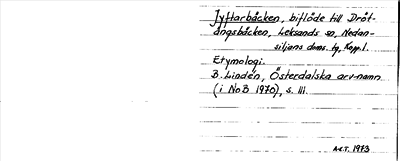 Jyftarbäcken, biflöde till Dröt-
ångsbäcken, Leksands sn, Nedan-
siljans doms. tg, Kopp.l.
Etymologi.
B. Lindén, Österdalska arv-namn
(i NoB 1970), s. 111.
A.C.T. 1973